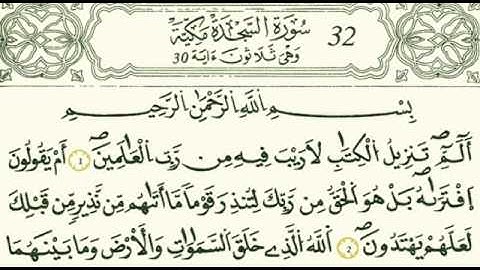 سُورَةُ السَّجْدَةِ مَكِّيَّةٌ 32
وَهِيَ ثَلَاثُونَ ءَايَةً 30
بِسْمِ اللَّهِ الرَّحْمَٰنِ الرَّحِيمِ
أَلَٓمِّٓ تَنزِيلُ الْكِتَٰبِ لَا رَيْبَ فِيهِ مِن رَّبِّ الْعَٰلَمِينَ ١ أَمْ يَقُولُونَ
اَفْتَرَىٰهُ بَلْ هُوَ الْحَقُّ مِن رَّبِّكَ لِتُنذِرَ قَوْماً مَّا أَتَىٰهُم مِّن نَّذِيرٍ مِّن قَبْلِكَ
لَعَلَّهُمْ يَهْتَدُونَ ٢ اَللَّهُ الَّذِي خَلَقَ السَّمَٰوَٰتِ وَالْأَرْضَ وَمَا بَيْنَهُمَا